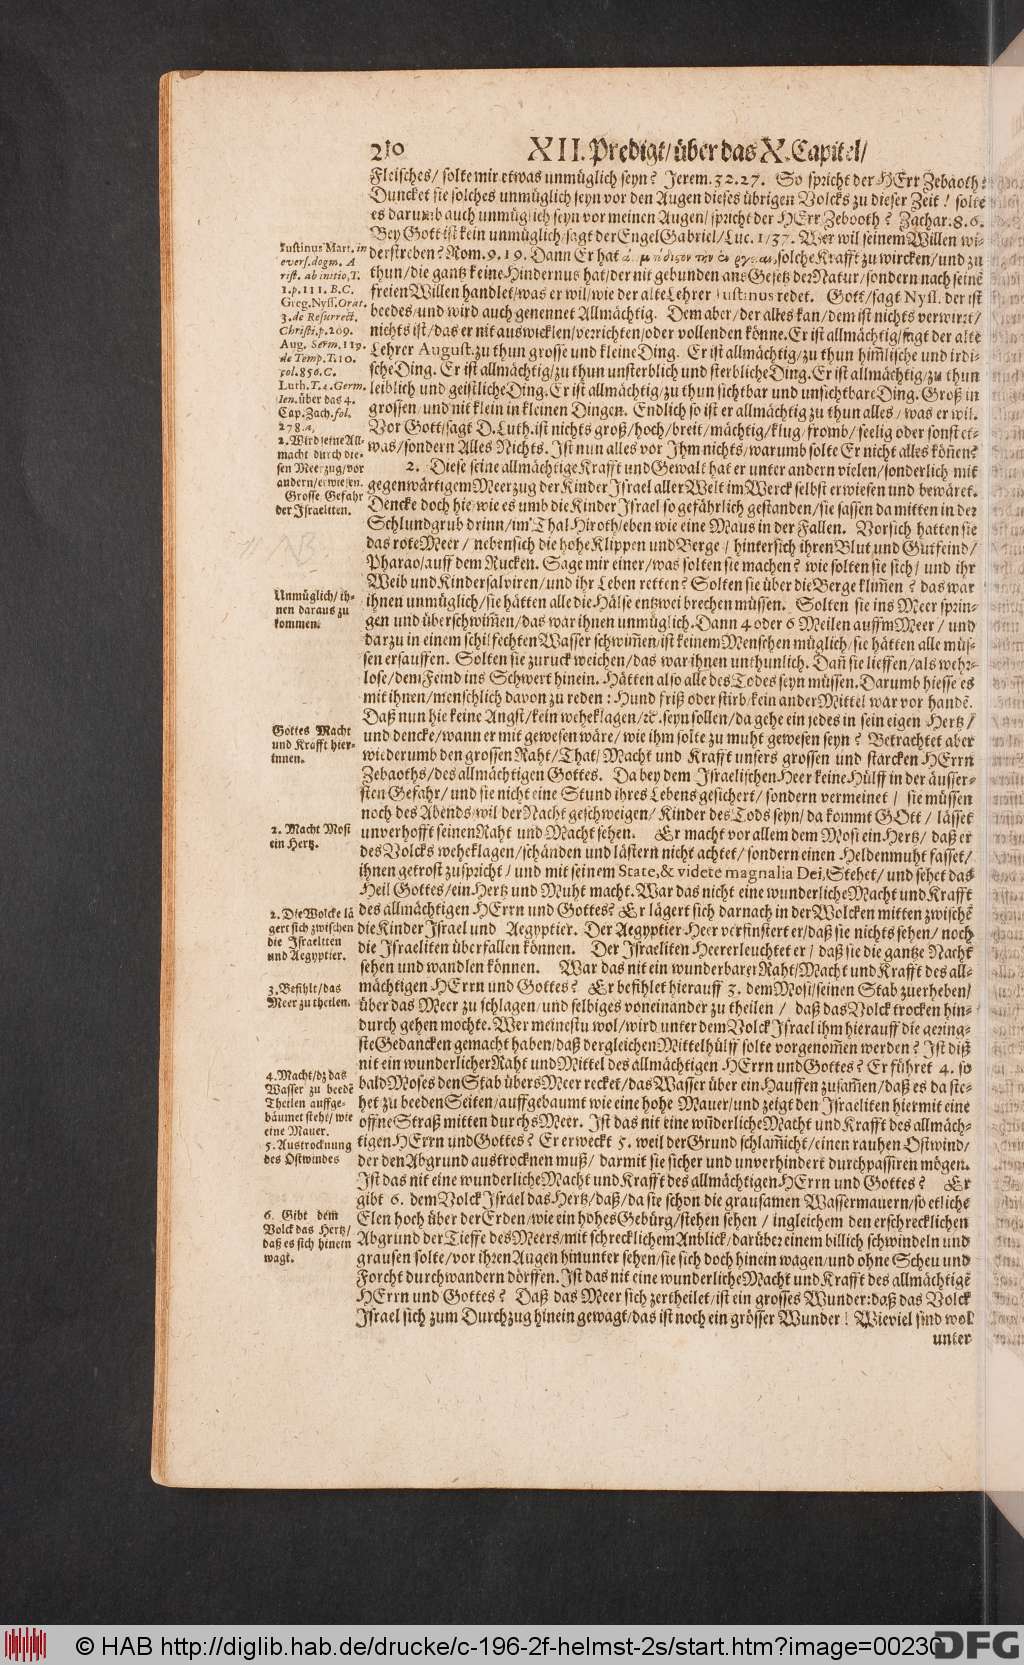 210 XII. Predigt/ über das X. Capitel/
Fleisches/ solte mir etwas unmüglich seyn? Jerem. 32. 27. So spricht der HErr Zebaoth:
Duncket sie solches unmüglich seyn vor den Augen dieses übrigen Volcks zu dieser Zeit! solte
es darumb auch unmüglich seyn vor meinen Augen/ spricht der HErr Zebaoth? Zachar. 8. 6.
Bey Gott ist kein unmüglich/ sagt der Engel Gabriel/ Luc. 1/ 37. Wer wil seinem Willen wi-
derstreben? Rom. 9. 19. Dann Er hat solche Krafft zu wircken/ und zu
thun/ die gantz keine Hindernus hat/ der nit gebunden ans Gesetz der Natur/ sondern nach seinē
freien Willen handlet/ was er wil/ wie der alte Lehrer Justinus redet. Gott/ sagt Nyss. der ist
beedes/ und wird auch genennet Allmächtig. Dem aber/ der alles kan/ dem ist nichts verwirrt/
nichts ist/ das er nit auswicklen/ verrichten/ oder vollenden könne. Er ist allmächtig/ sagt der alte
Lehrer August. zu thun grosse und kleine Ding. Er ist allmächtig/ zu thun him̄lische und irdi-
sche Ding. Er ist allmächtig/ zu thun unsterblich und sterbliche Ding. Er ist allmächtig/ zu thun
leiblich und geistliche Ding. Er ist allmächtig/ zu thun sichtbar und unsichtbare Ding. Groß in
grossen/ und nit klein in kleinen Dingen. Endlich so ist er allmächtig zu thun alles/ was er wil.
Vor Gott/ sagt D. Luth. ist nichts groß/ hoch/ breit/ mächtig/ klug/ fromb/ seelig oder sonst et-
was/ sondern Alles Nichts. Ist nun alles vor Ihm nichts/ warumb solte Er nicht alles kön̄en?
2. Diese seine allmächtige Krafft und Gewalt hat er unter andern vielen/ sonderlich mit
gegenwärtigem Meerzug der Kinder Israel aller Welt im Werck selbst erwiesen und bewäret.
Dencke doch hie/ wie es umb die Kinder Israel so gefährlich gestanden/ sie sassen da mitten in der
Schlundgrub drinn/ im Thal Hiroth/ eben wie eine Maus in der Fallen. Vorsich hatten sie
das rote Meer/ nebensich die hohe Klippen und Berge/ hintersich ihren Blut und Gutfeind/
Pharao/ auff dem Rucken. Sage mir einer/ was solten sie machen? wie solten sie sich/ und ihr
Weib und Kinder salviren/ und ihr Leben retten? Solten sie über die Berge klim̄en? das war
ihnen unmüglich/ sie hätten alle die Hälse entzwei brechen müssen. Solten sie ins Meer sprin-
gen und überschwim̄en/ das war ihnen unmüglich. Dann 4 oder 6 Meilen auff'm Meer/ und
darzu in einem schilfechten Wasser schwim̄en/ ist keinem Menschen müglich/ sie hätten alle müs-
sen ersauffen. Solten sie zuruck weichen/ das war ihnen unthunlich. Dan̄ sie lieffen/ als wehr-
lose/ dem Feind ins Schwert hinein. Hätten also alle des Todes seyn müssen. Darumb hiesse es
mit ihnen/ menschlich davon zu reden: Hund friß oder stirb/ kein ander Mittel war vor handē.
Daß nun hie keine Angst/ kein weheklagen/ ꝛc. seyn sollen/ da gehe ein jedes in sein eigen Hertz/
und dencke/ wann er mit gewesen wäre/ wie ihm solte zu muht gewesen seyn? Betrachtet aber
wiederumb den grossen Raht/ That/ Macht und Krafft unsers grossen und starcken HErrn
Zebaoths/ des allmächtigen Gottes. Da bey dem Israelischen Heer keine Hülff in der äusser-
sten Gefahr/ und sie nicht eine Stund ihres Lebens gesichert/ sondern vermeinet/ sie müssen
noch des Abends/ wil der Nacht geschweigen/ Kinder des Tods seyn/ da kommt GOtt/ lässet
unverhofft seinen Raht und Macht sehen. Er macht vor allem dem Mosi ein Hertz/ daß er
des Volcks weheklagen/ schänden und lästern nicht achtet/ sondern einen Heldenmuht fasset/
ihnen getrost zuspricht/ und mit seinem State, & videte magnalia Dei, Stehet/ und sehet das
Heil Gottes/ ein Hertz und Muht macht. War das nicht eine wunderliche Macht und Krafft
des allmächtigen HErrn und Gottes? Er lägert sich darnach in der Wolcken mitten zwischē
die Kinder Israel und Aegyptier. Der Aegyptier Heer verfinstert er/ daß sie nichts sehen/ noch
die Israeliten überfallen können. Der Israeliten Heer erleuchtet er/ daß sie die gantze Nacht
sehen und wandlen können. War das nit ein wunderbarer Raht/ Macht und Krafft des all-
mächtigen HErrn und Gottes? Er befihlet hierauff 3. dem Mosi/ seinen Stab zuerheben/
über das Meer zu schlagen/ und selbiges voneinander zu theilen/ daß das Volck trocken hin-
durch gehen mochte. Wer meinestu wol/ wird unter dem Volck Israel ihm hierauff die gering-
ste Gedancken gemacht haben/ daß dergleichen Mittelhülff solte vorgenom̄en werden? Ist diß
nit ein wunderlicher Raht und Mittel des allmächtigen HErrn und Gottes? Er führet 4. so
bald Moses den Stab übers Meer recket/ das Wasser über ein Hauffen zusam̄en/ daß es da ste-
het zu beeden Seiten/ auffgebaumt wie eine hohe Mauer/ und zeigt den Israeliten hiermit eine
offne Straß mitten durchs Meer. Ist das nit eine wun̄derliche Macht und Krafft des allmäch-
tigen HErrn und Gottes? Er erweckt 5. weil der Grund schlam̄icht/ einen rauhen Ostwind/
der den Abgrund austrocknen muß/ darmit sie sicher und unverhindert durchpassiren mögen.
Ist das nit eine wunderliche Macht und Krafft des allmächtigen HErrn und Gottes? Er
gibt 6. dem Volck Israel das Hertz/ daß/ da sie schon die grausamen Wassermauern/ so etliche
Elen hoch über der Erden/ wie ein hohes Gebürg/ stehen sehen/ ingleichem den erschrecklichen
Abgrund der Tieffe des Meers/ mit schrecklichem Anblick/ darüber einem billich schwindeln und
grausen solte/ vor ihren Augen hinunter sehen/ sie sich doch hinein wagen/ und ohne Scheu und
Forcht durchwandern dörffen. Ist das nit eine wunderliche Macht und Krafft des allmächtigē
HErrn und Gottes? Daß das Meer sich zertheilet/ ist ein grosses Wunder: daß das Volck
Israel sich zum Durchzug hinein gewagt/ das ist noch ein grösser Wunder! Wieviel sind wol
unter
Justinus Mart. in
evers. dogm. A
rist. ab initio, T.
1. p. 111. B. C.
Greg. Nyss. Orat.
3. de Resurrect.
Christi. p. 209.
Aug. Serm. 119.
de Temp. T. 10.
fol. 850. C.
Luth. T. 2. Germ.
Ien. über das 4.
Cap. Zach. fol.
278. a,
2. Wird seine All-
macht durch die-
sen Meerzug/ vor
andern/ erwiesen.
Grosse Gefahr
der Israeliten.
NB
Unmüglich/ ih-
nen daraus zu
kommen.
Gottes Macht
und Krafft hier-
innen.
1. Macht Mosi
ein Hertz.
2. Die Wolcke lä
gert sich zwischen
die Israeliten
und Aegyptier.
3. Befihlt/ das
Meer zu theilen.
4. Macht/ dz das
Wasser zu beedē
Theilen auffge-
bäumet steht/ wie
eine Mauer.
5. Austrocknung
des Ostwindes
6. Gibt dem
Volck das Hertz/
daß es sich hinein
wagt.
© HAB http://diglib.hab.de/drucke/c-196-2f-helmst-2s/start.htm?image=00230
DFG